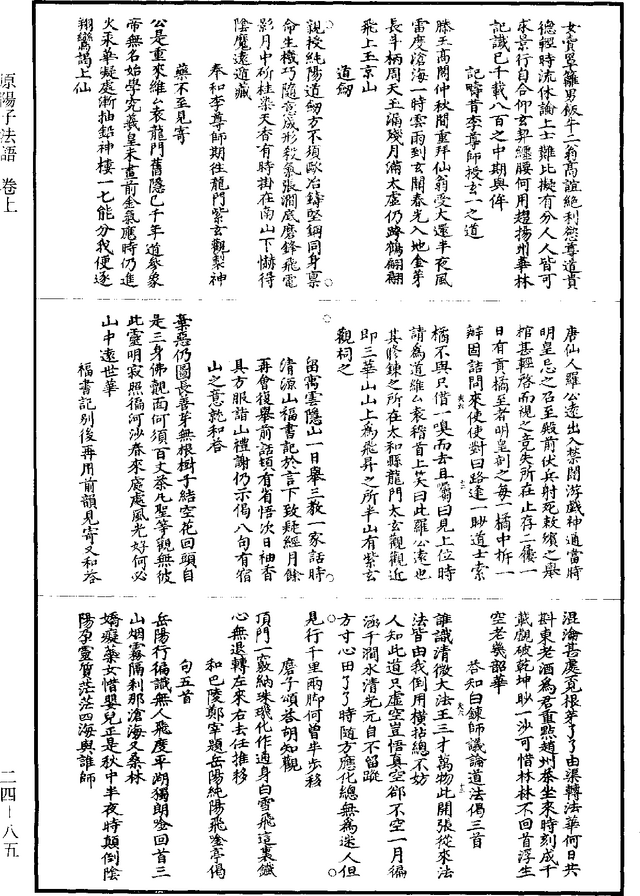 女賣罩籬男販牛二翁高誼絕利慾尊道貴
德輕時流休論上士難比擬有分人人皆可
求景行自合仰玄契纏腰何用趨揚州華林
記識已千載八百之中期與侔
記疇昔李尊師授玄一之道
滕王高閣仲秋間重拜仙翁受大還半夜風
雷度滄海一時雲雨到玄關春光入地金芽
長斗柄周天玉漏殘月滿太虛仍跨鶴翩翩
飛上玉京山
道劒
親授純陽道劒方不須歐冶鑄堅鋼同身稟
命生機巧隨意成形殺氣張澗底磨鋒飛電
影月中斫桂染天香有時掛在南山下慽得
陰魔遠遁藏
奉和李尊師期往龍門紫玄觀製神
藥不至見寄
公是重來維厶表龍門舊隱已千年道參象
帝無名始學究羲皇未畫前金氣應時仍進
火汞華凝處漸抽鉛神樓一七能分我便逐
翔鸞謁上仙
唐仙人羅公遠出入禁闥游戲神通當時
明皇忌之召至殿前伏兵射死敕殯之舉
棺甚輕啓而視之竟失所在止存二履一
日有貢橘至者明皇剖之每一橘中拆一
辮固詰問來使使對曰路逢一眇道士索
橘不與只借一嗅而去且囑曰見上位時
請為道維厶表稽首上笑曰此羅公遠也
其修鍊之所在太和縣龍門太玄觀觀近
即三華山山上為飛昇之所半山有紫玄
觀祠之
留寓雲隱山一日舉三教一家話時
清源山福書記於言下致疑經月餘
再會復舉前話頓有省悟次日袖香
具方服詣山禮謝仍示偈八句有宿
山之意就和荅
棄惡仍圖長善芽無根樹子結空花回頭自
是三身佛覿面何須百丈茶凡聖等觀無彼
此靈明寂照徧河沙春來處處風光好何必
山中遠世華
福書記別後再用前韻見寄又和荅
混淪甚處覓根芽了了由渠轉法華何日共
斟東老酒為君重點趙州茶坐來時刻成千
載觀破乾坤眇一沙可惜林林不回首浮生
空老幾韶華
荅知白鍊師議論道法偈三首
誰識清微大法王三才萬物此開張從來法
法皆由我倒用橫拈總不妨
人知此道只虛空豈悟真空卻不空一月徧
涵千澗水清光元自不留蹤
方寸心田了了時隨方應化總無為迷人但
見行千里兩脚何曾半步移
磨子頌荅胡知觀
頂門一竅納珠璣化作通身白雪飛這裏鐵
心無退轉左來右去任推移
和巴陵鄭宰題岳陽純陽飛唫亭偈
句五首
岳陽行徧識無人飛度平湖獨朗唫回首三
山烟霧隔刹那滄海又桑林
嬌癡藥女惜嬰兒正是秋中半夜時顛倒陰
陽孕靈質茫茫四海與誰師
原陽子法語 卷上
二四－八五